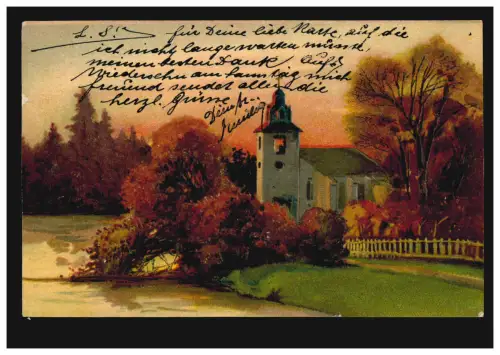 L. S. für Deine liebe Karte, auf die
ich nicht lange warten musste,
meinen besten Dank. Auf
Wiedersehn am Samstag mich
freuend sendet allen die
herzl. Grüsse